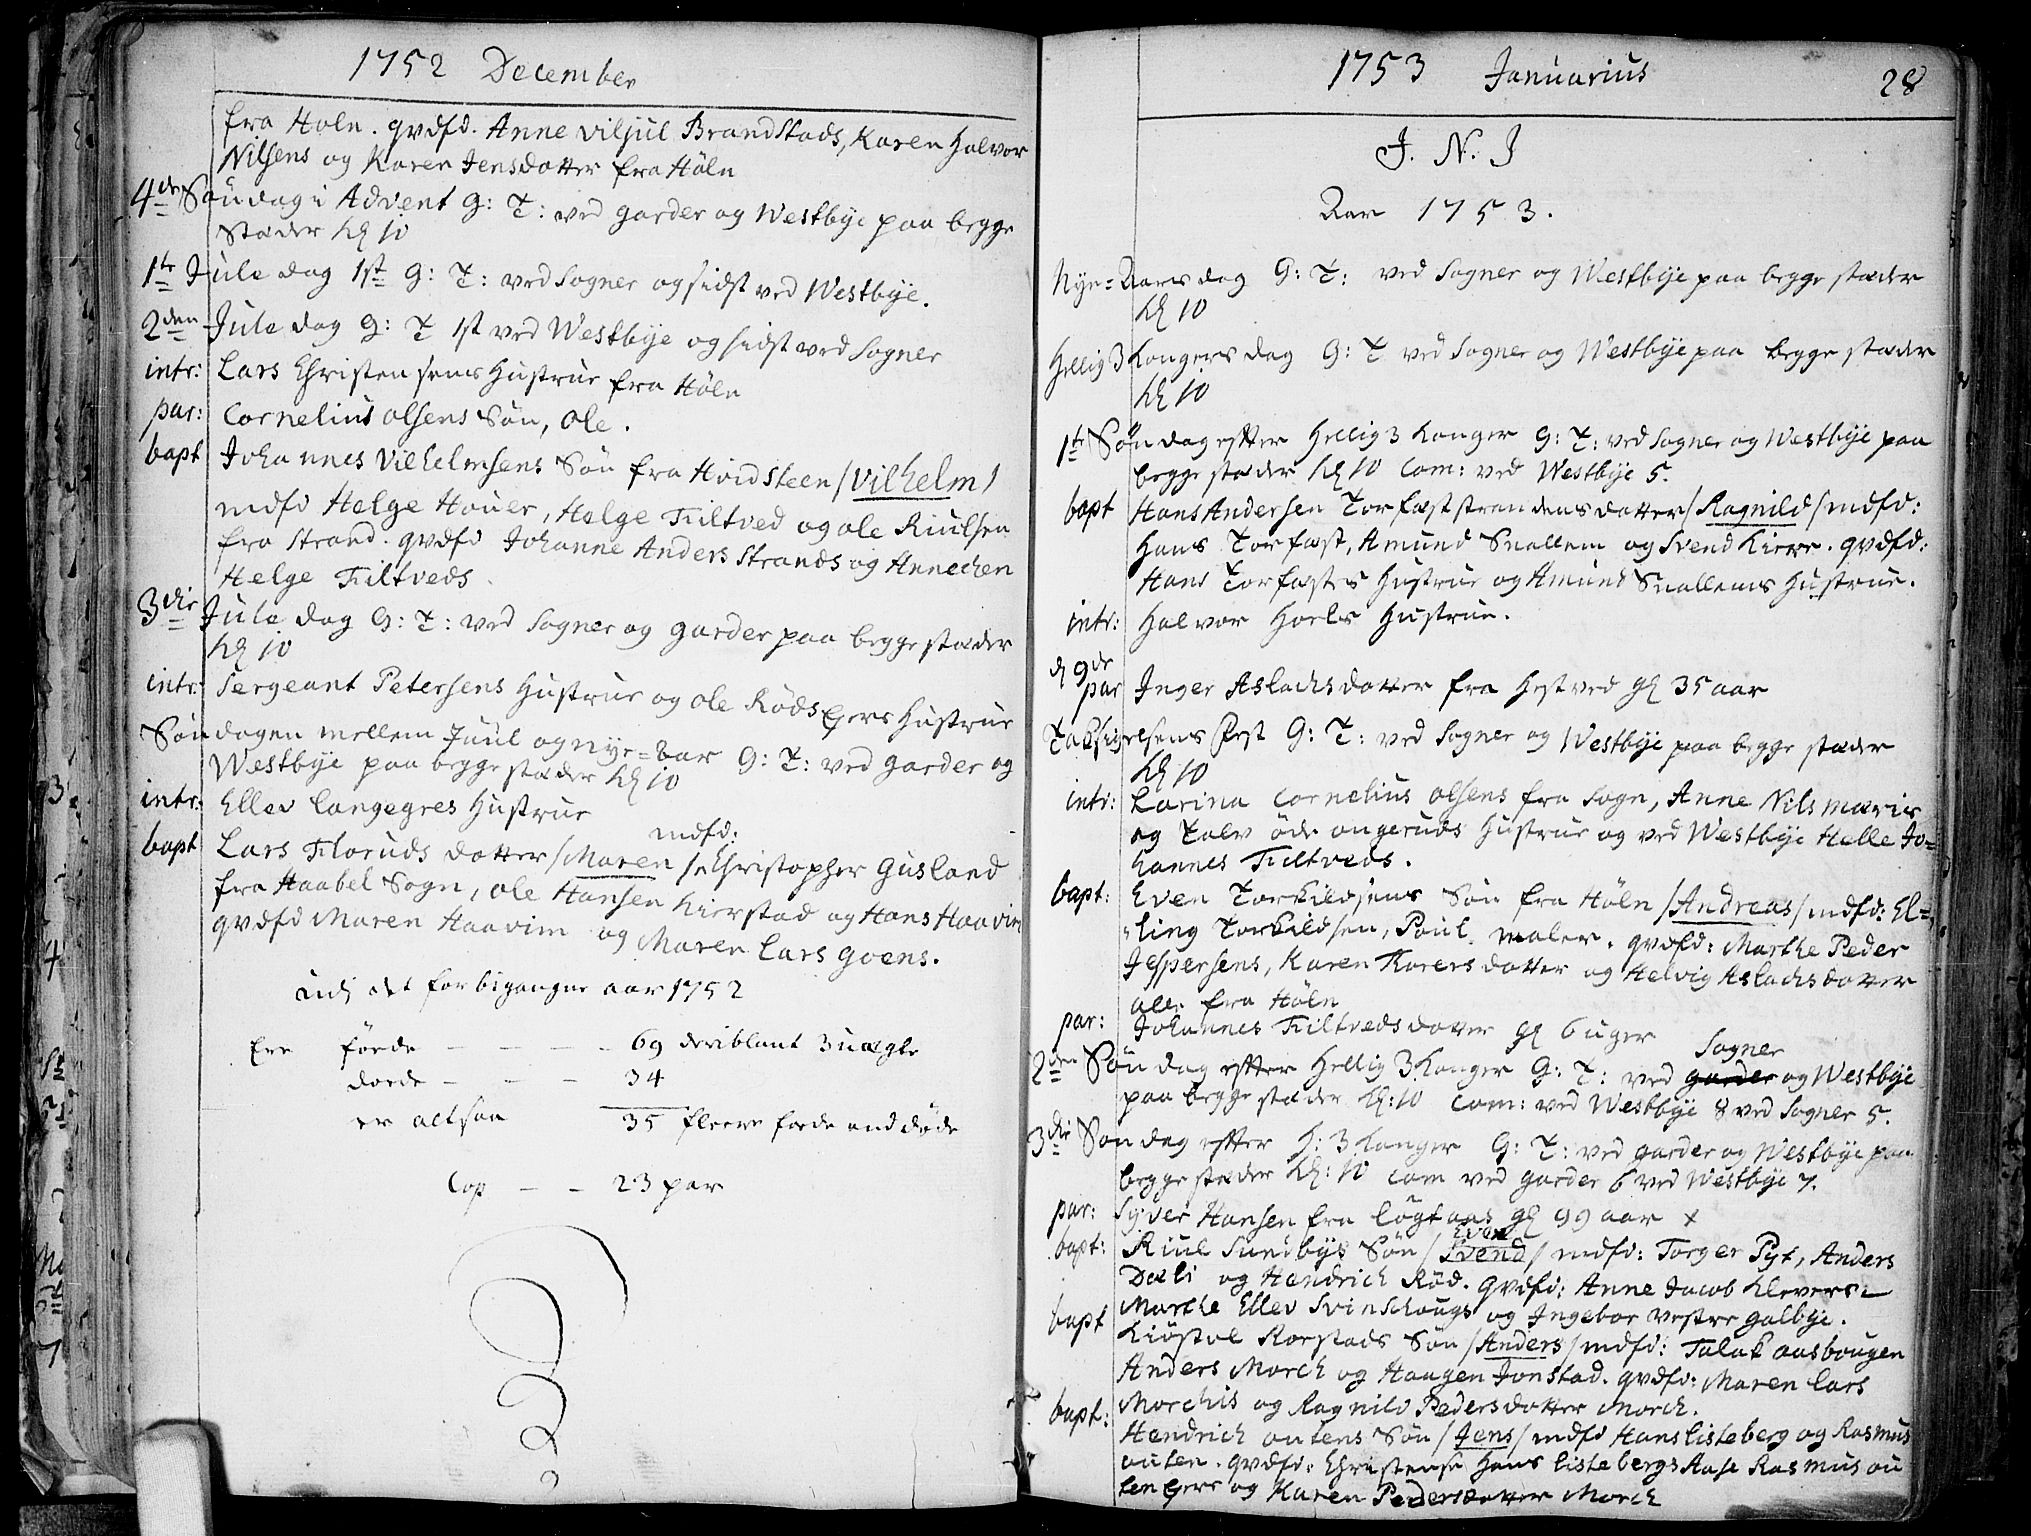 1752 December
fra Holn. qvdfd. Anne viljul Brandstads, Karen Halvor
Nilsens og Karen Jensdotter fra Höln
4de Söndag i Advent G: T: ved garder og Westbye paa begge
stæder kl 10
1te Jule dag 1st G: T: ved Sogner og sidst ved Westbye.
2den Jule dag G: T 1st ved Westbye og sidst ved Sogner
intr: Lars Christensens Hustrue fra Höln
par: Cornelius olsens Sön, ole.
bapt Johannes Vilhelmsens Sön fra Hvidsteen /Vilhelm/
mdfd Helge Houer, Helge Filtved og ole Riulsen
fra Strand. qvdfd Johanne Anders Strands og Annechen
Helge Filtveds
3die Jule dag G: T: ved Sogner og garder paa begge stæder
kl 10
intr: Sergeant Petersens Hustrue og ole Röds Eyers Hustrue
Söndagen mellem Juul og nye=aar G: T: ved garder og
Westbye paa begge stæder kl 10
intr: Ellev Langegres Hustrue
mdfd:
bapt Lars Floruds dotter /Maren/ Christopher Gusland
fra Haabel Sogn, ole Hansen Kierstad og Hans Haavim
qvdfd Maren Haavim og Maren Lars goens.
Udi det forbigangne aar 1752
Ere födde - - - - 69 deriblant 3 uægte
döede - - - 34
er altsaa 35 fleere födde end döde
Cop - - 23 par
1753 Januarius 28
J. N. J
Aar 1753.
Nye=Aars dag G: T: ved Sogner og Westbye paa begge stæder
kl 10
Hellig 3 Kongers dag G: T ved Sogner og Westbye paa begge stæder
kl 10
1te Söndag efter Hellig 3 Konger G: T: ved Sogner og Westbye paa
begge stæder kl 10 Com: ved Westbye 5.
bapt Hans Andersen Torfæststrandens dotter /Ragnild/ mdfd:
Hans Torfæst, Amund Snallem og Svend Kiere. qvdfd:
Hans Torfæstes Hustrue og Amund Snallems Hustrue.
intr: Halvor Hoels Hustrue.
d 9de
par Inger Aslachsdotter fra Hestved gl 35 aar
Taksigelsens Fest G: T: ved Sogner og Westbye paa begge stæder
kl 10
intr: Karina Cornelius olsens fra Sogn, Anne Nils
og Talv öde ongeruds Hustrue og ved Westbye Helle Jo=
hannes Filtveds.
bapt: Even Torkildsens Sön fra Höln /Andreas/ mdfd: El=
ling Torkildsen, Poul maler. qvdfd: Marthe Peder
Jespersens, Karen Torersdotter og Helvig Aslachsdotter
alle fra Höln
par: Johannes Filtveds dotter gl 6 uger
Sogner
2den Söndag efter Hellig 3 Konger G: T: ved garder og Westbye
paa begge stæder kl: 10 Com: ved Westbye 8 ved Sogner 5.
3die Söndag efter H: 3 Konger G: T: ved garder og Westbye paa
begge stæder kl: 10 Com ved garder 6 ved Westbye 7.
par: Syver Hansen fra Lögtaas gl 99 aar x
Even
bapt: Riul Sundbys Sön /Svend/ mdfd: Torger Pyt, Anders
Dæli og Hendrich Röd. qvdfd: Anne Jacob Klevers
Marthe Ellev Svinschougs og Ingebor vestre galbye.
bapt Kiöstol Korstads Sön /Anders/ mdfd: Falak aasbougen
Anders Morch og Haagen Jonstad. qvdfd: Maren Lars
Morchis og Ragnild Pedersdotter Morch.
bapt: Hendrich outens Sön /Jens/ mdfd Hans Listeberg og Rasmus
outen. qvdfd: Christense Hans Listebergs Aase Rasmus ou
ten Eyer og Karen Pedersdotter Morch